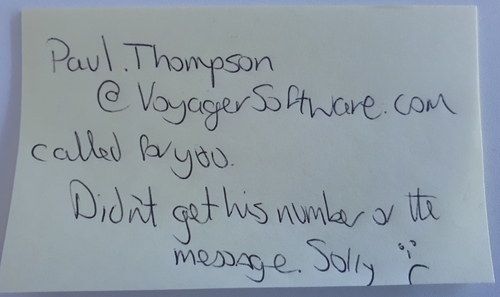 Paul.Thompson
@VoyagerSoftware.com
called for you.
Didn't get his number or the
message. Solly